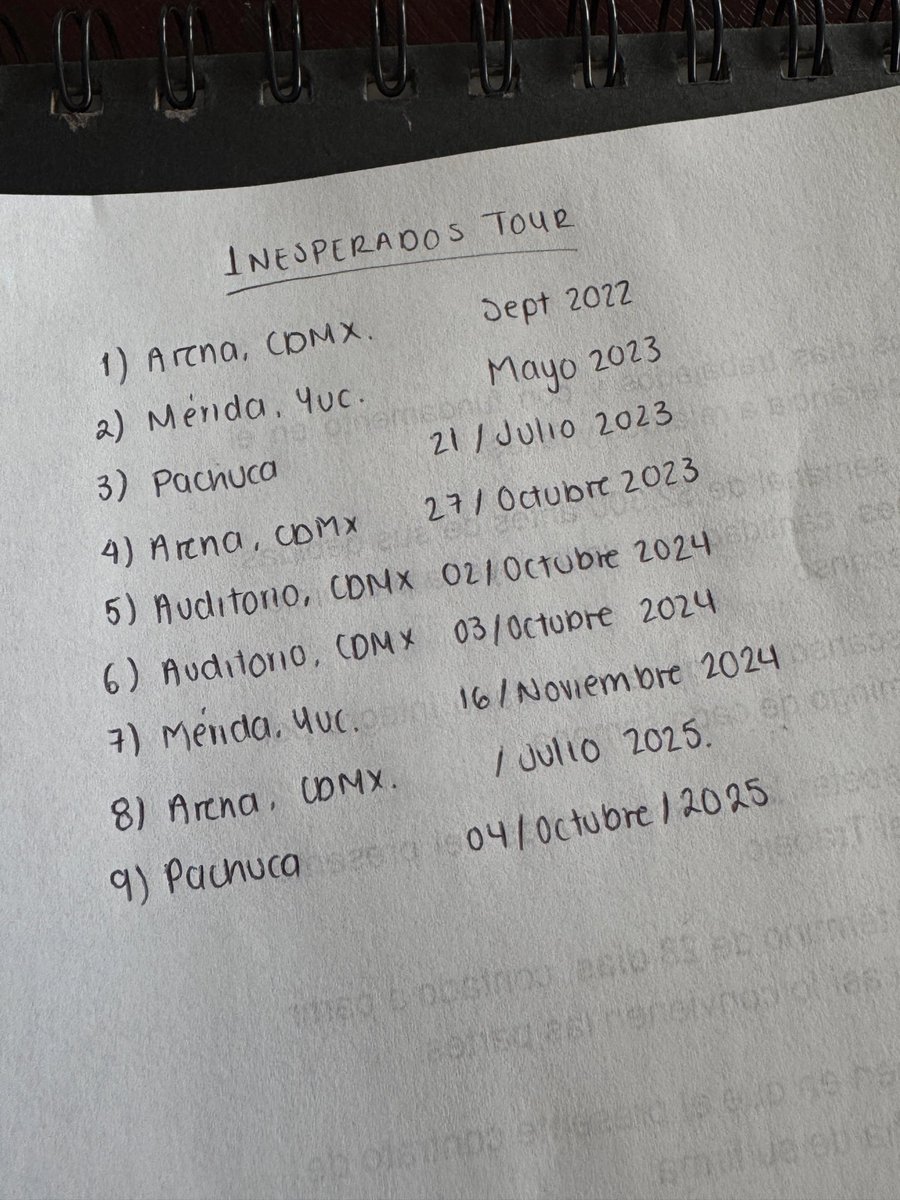 INESPERADOS TOUR
1) Arena, CDMX. Sept 2022
2) Mérida, Yuc. Mayo 2023
3) Pachuca 21 / Julio 2023
4) Arena, CDMX 27 / Octubre 2023
5) Auditorio, CDMX 02/Octubre 2024
6) Auditorio, CDMX 03/Octubre 2024
7) Mérida, Yuc. 16/Noviembre 2024
8) Arena, CDMX. / Julio 2025.
9) Pachuca 04/Octubre/2025